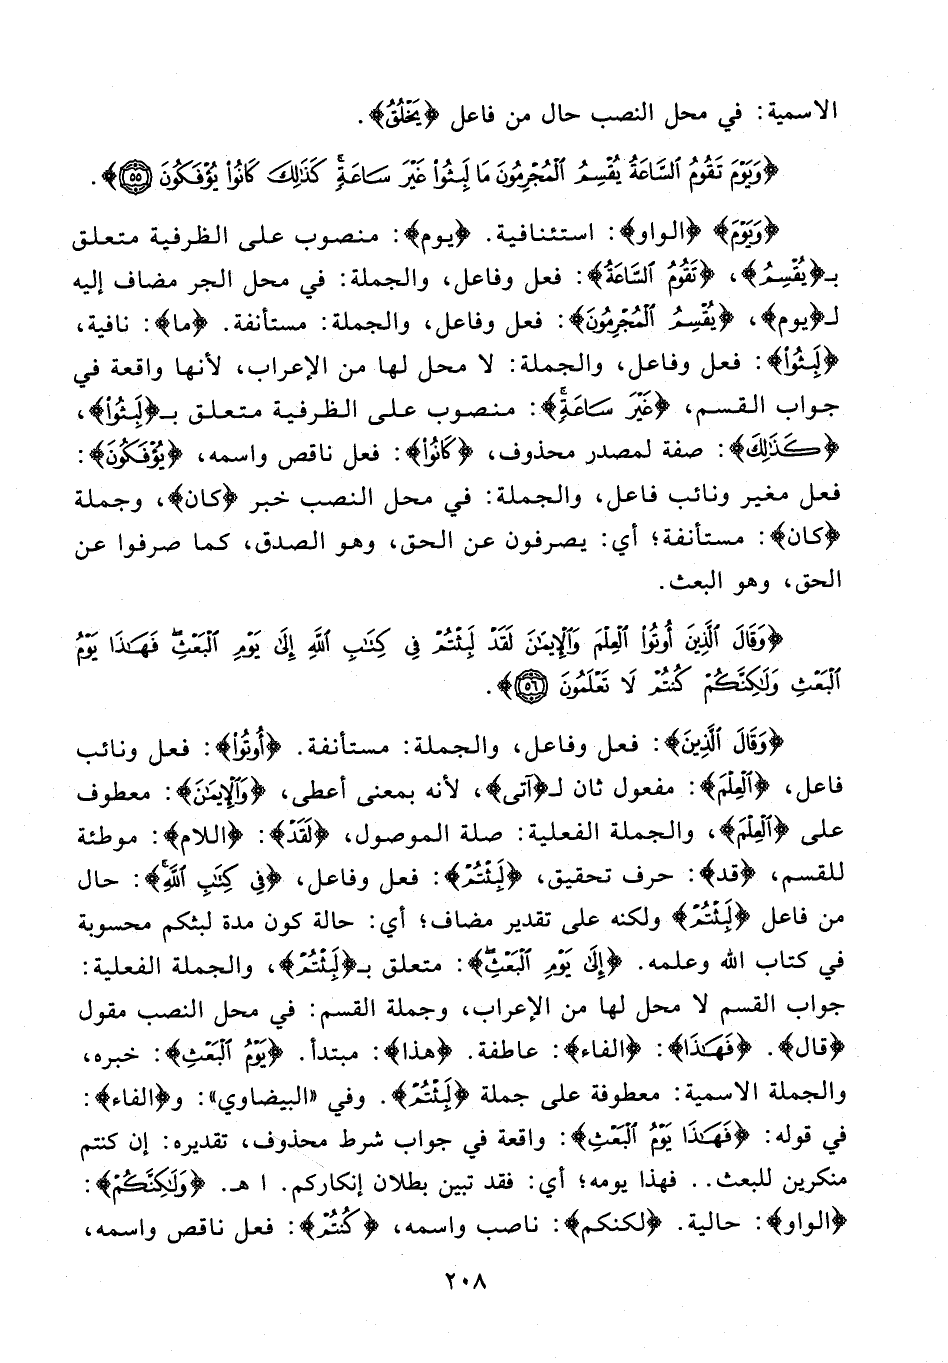 الاسمية: في محل النصب حال من فاعل ﴿يَخْلُقُ﴾.
﴿وَيَوْمَ تَقُومُ ٱلسَّاعَةُ يُقْسِمُ ٱلْمُجْرِمُونَ مَا لَبِثُوا۟ غَيْرَ سَاعَةٍۚ كَذَٰلِكَ كَانُوا۟ يُؤْفَكُونَ ٥٥﴾.
﴿وَيَوْمَ﴾ ﴿الواو﴾: استئنافية. ﴿يوم﴾: منصوب على الظرفية متعلق
بـ﴿يُقْسِمُ﴾، ﴿تَقُومُ ٱلسَّاعَةُ﴾: فعل وفاعل، والجملة: في محل الجر مضاف إليه
لـ﴿يوم﴾، ﴿يُقْسِمُ ٱلْمُجْرِمُونَ﴾: فعل وفاعل، والجملة: مستأنفة. ﴿ما﴾: نافية،
﴿لَبِثُوا۟﴾: فعل وفاعل، والجملة: لا محل لها من الإعراب، لأنها واقعة في
جواب القسم، ﴿غَيْرَ سَاعَةٍۚ﴾: منصوب على الظرفية متعلق بـ﴿لَبِثُوا۟﴾،
﴿كَذَٰلِكَ﴾: صفة لمصدر محذوف، ﴿كَانُوا۟﴾: فعل ناقص واسمه، ﴿يُؤْفَكُونَ﴾:
فعل مغير ونائب فاعل، والجملة: في محل النصب خبر ﴿كان﴾، وجملة
﴿كان﴾: مستأنفة؛ أي: يصرفون عن الحق، وهو الصدق، كما صرفوا عن
الحق، وهو البعث.
﴿وَقَالَ ٱلَّذِينَ أُوتُوا۟ ٱلْعِلْمَ وَٱلْإِيمَٰنَ لَقَدْ لَبِثْتُمْ فِى كِتَٰبِ ٱللَّهِ إِلَىٰ يَوْمِ ٱلْبَعْثِۖ فَهَٰذَا يَوْمُ
ٱلْبَعْثِ وَلَٰكِنَّكُمْ كُنتُمْ لَا تَعْلَمُونَ ٥٦﴾.
﴿وَقَالَ ٱلَّذِينَ﴾: فعل وفاعل، والجملة: مستأنفة. ﴿أُوتُوا۟﴾: فعل ونائب
فاعل، ﴿ٱلْعِلْمَ﴾: مفعول ثان لـ﴿آتى﴾، لأنه بمعنى أعطى، ﴿وَٱلْإِيمَٰنَ﴾: معطوف
على ﴿ٱلْعِلْمَ﴾، والجملة الفعلية: صلة الموصول، ﴿لَقَدْ﴾: ﴿اللام﴾: موطئة
للقسم، ﴿قد﴾: حرف تحقيق، ﴿لَبِثْتُمْ﴾: فعل وفاعل، ﴿فِى كِتَٰبِ ٱللَّهِۚ﴾: حال
من فاعل ﴿لَبِثْتُمْ﴾ ولكنه على تقدير مضاف؛ أي: حالة كون مدة لبثكم محسوبة
في كتاب الله وعلمه. ﴿إِلَىٰ يَوْمِ ٱلْبَعْثِۖ﴾: متعلق بـ﴿لَبِثْتُمْ﴾، والجملة الفعلية:
جواب القسم لا محل لها من الإعراب، وجملة القسم: في محل النصب مقول
﴿قال﴾. ﴿فَهَٰذَا﴾: ﴿الفاء﴾: عاطفة. ﴿هذا﴾: مبتدأ. ﴿يَوْمُ ٱلْبَعْثِ﴾: خبره،
والجملة الاسمية: معطوفة على جملة ﴿لَبِثْتُمْ﴾. وفي «البيضاوي»: و﴿الفاء﴾:
في قوله: ﴿فَهَٰذَا يَوْمُ ٱلْبَعْثِ﴾: واقعة في جواب شرط محذوف، تقديره: إن كنتم
منكرين للبعث.. فهذا يومه؛ أي: فقد تبين بطلان إنكاركم. ا هـ. ﴿وَلَٰكِنَّكُمْ﴾:
﴿الواو﴾: حالية. ﴿لكنكم﴾: ناصب واسمه، ﴿كُنتُمْ﴾: فعل ناقص واسمه،
٢٠٨